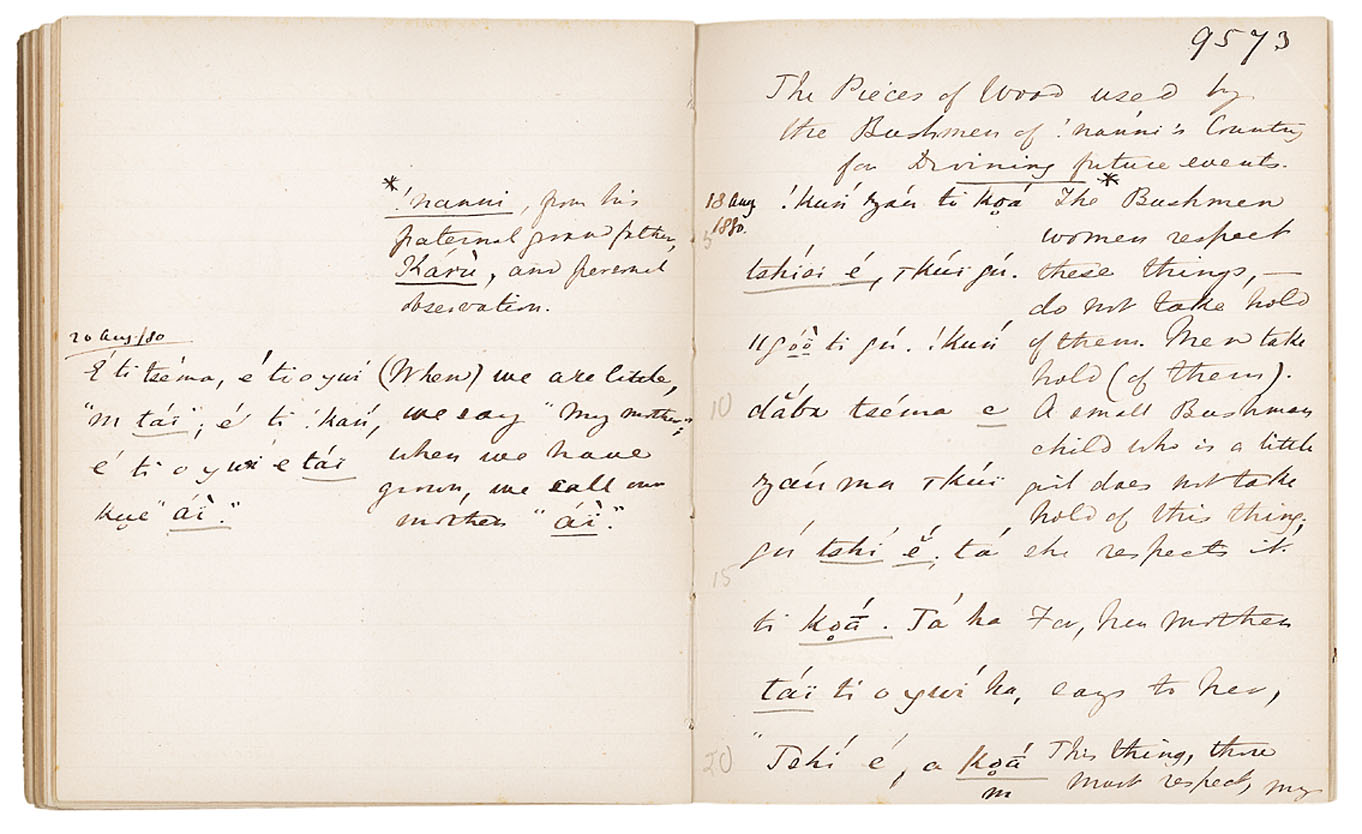 *
!nanni, from his
paternal grandfather,
Karù, and personal
observation.
20 Aug./80
É ti tséma, é ti o ywi (When) we are little,
"m táï"; é ti !kań, we say "My mother";
é ti o ywi e táï when we have
grown, we call our
kue "áï̀." mother "áï̀."
9573
The Pieces of Wood used by
the Bushmen of !nanni's Country
for Divining future events.
*
18 Aug
1880.
!kuń záu ti koá The Bushmen
5 women respect
tshíai é, ꞇkúï gú. these things, —
do not take hold
ugóò ti gú. !kuń of them. Men take
hold (of them).
10 dăba tséma e A small Bushman
child who is a little
záu ma ꞇkúï girl does not take
hold of this thing;
gú tshí ĕ; tá she respects it.
15
ti koā́. Tá ha For, her mother
táï ti o ywi ha, says to her,
20 "Tshí é, a koā́ This thing, thou
m must respect, my